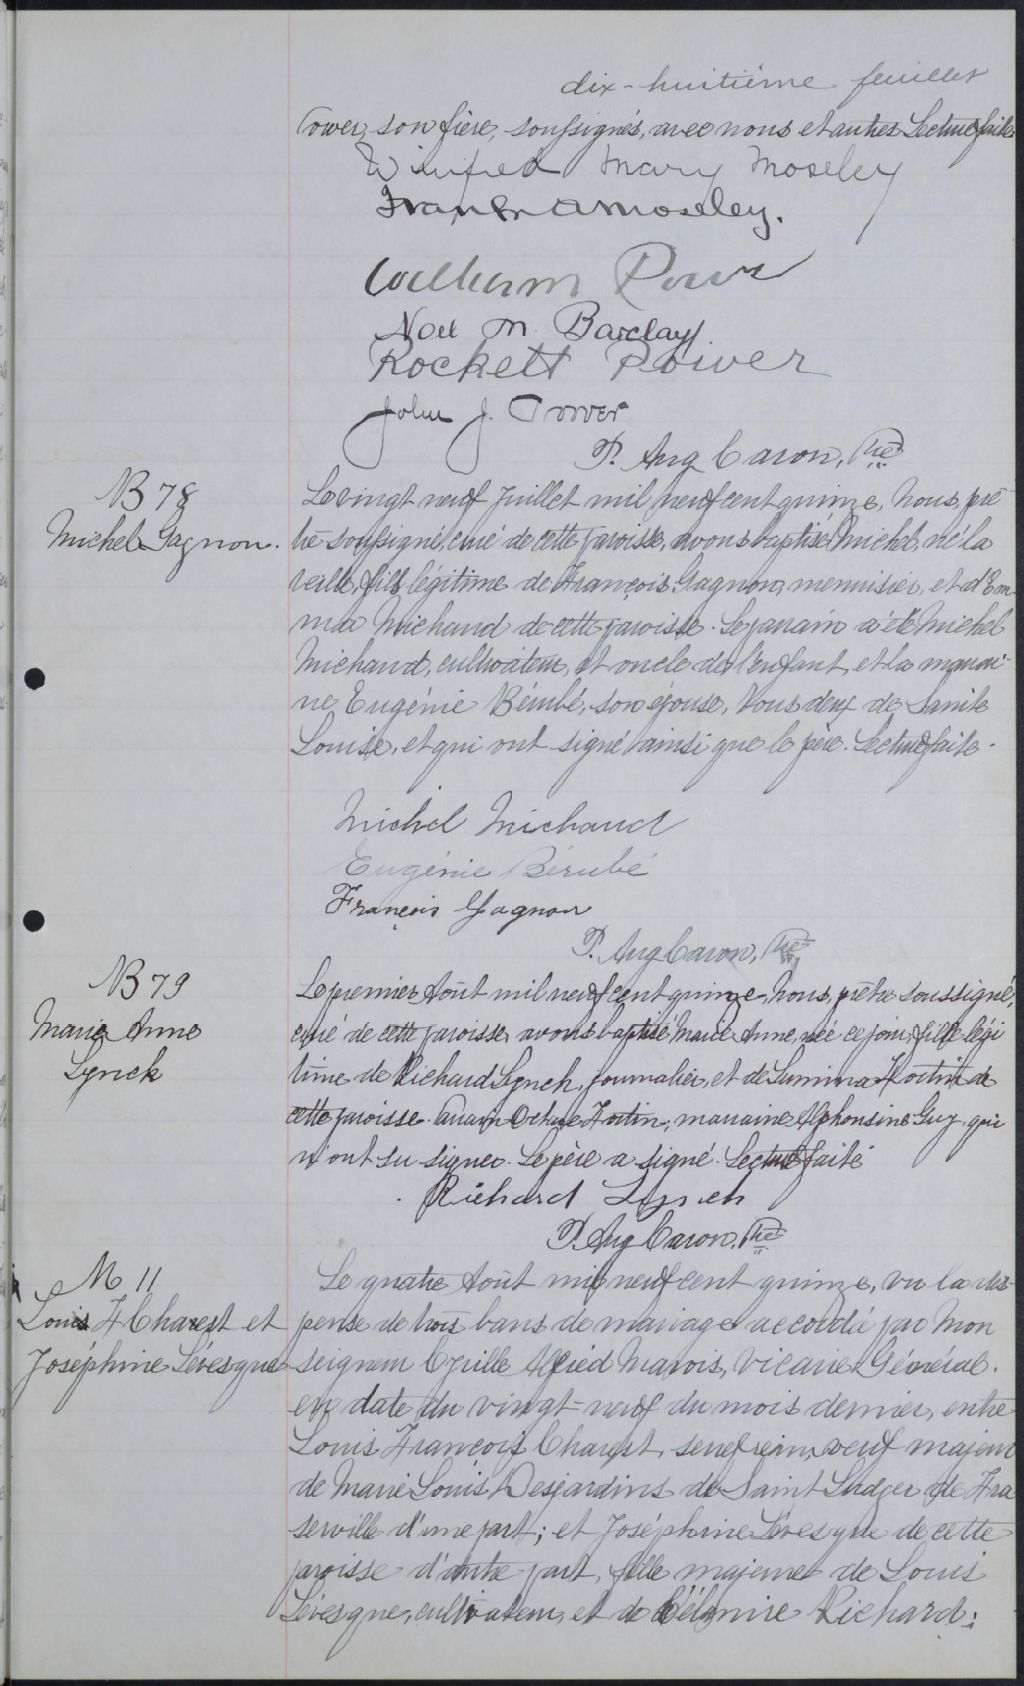 dix-huitième feuillet
Power, son frère, soussignés, avec nous et autres Lecture faite
Winifred Mary Moseley
Frank A Moseley.
William Power
Noel M. Barclay
Rockett Power
John J. Power
P. Aug Caron, Ptre
B 78
Michel Gagnon.
Le vingt neuf Juillet mil neuf cent quinze, Nous, prê-
tre soussigné, curé de cette paroisse, avons baptisé Michel, né la
veille, fils légitime de François Gagnon, menuisier, et d'Em-
ma Michaud de cette paroisse. Le parrain a été Michel
Michaud, cultivateur, et oncle de l'enfant, et la marrai-
ne Eugénie Bérubé, son épouse, tous deux de Sainte
Louise, et qui ont signé ainsi que le père. Lecture faite.
Michel Michaud
Eugénie Bérubé
François Gagnon
P. Aug Caron, Ptre
B 79
Marie Anne
Lynch
Le premier Août mil neuf cent quinze, Nous, prêtre soussigné,
curé de cette paroisse avons baptisé Marie Anne, née ce jour, fille légi
time de Richard Lynch, journalier, et de Lumina Fortin de
cette paroisse. Parrain Octave Fortin, marraine Alphonsine Guy, qui
n'ont su signer. Le père a signé. Lecture faite
Richard Lynch
P. Aug Caron, Ptre
M 11
Louis F Charest et
Joséphine Lévesque
Le quatre Août mil neuf cent quinze, vu la dis-
pense de trois bans de mariage accordée par Mon
seigneur Cyrille Alfred Marois, Vicaire Général.
en date du vingt-neuf du mois dernier, entre
Louis François Charest, serre frein, veuf majeur
de Marie Louise Desjardins de Saint Ludger de Fra
serville d'une part; et Joséphine Lévesque de cette
paroisse d'autre part, fille majeure de Louis
Lévesque, cultivateur, et de Célanire Richard;